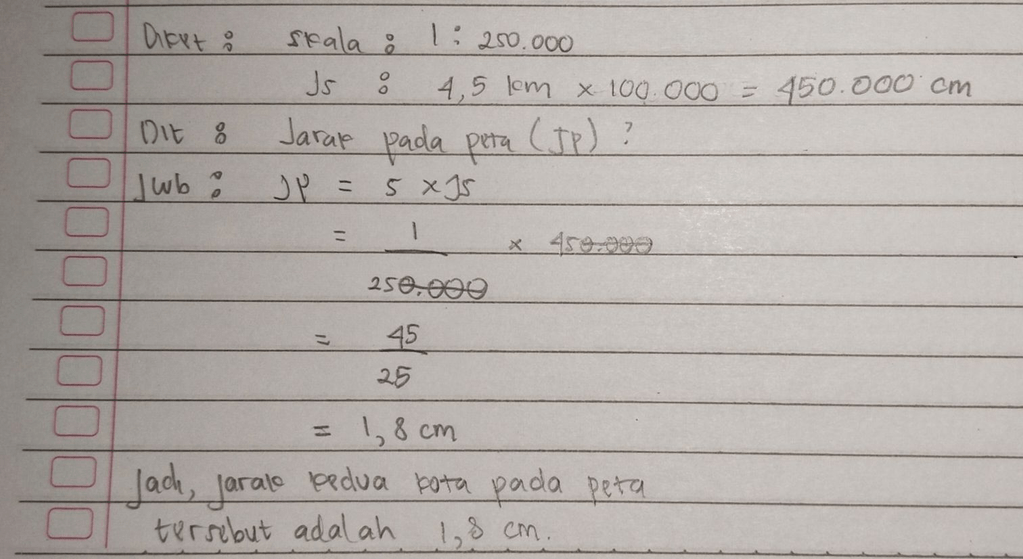 Diket : skala : 1 : 250.000
Js : 4,5 km × 100.000 = 450.000 cm
Dit : Jarak pada peta (JP) ?
Jwb : JP = S × JS
= 1 × 450.000
250.000
= 45
25
= 1,8 cm
Jadi, jarak kedua kota pada peta
tersebut adalah 1,8 cm.